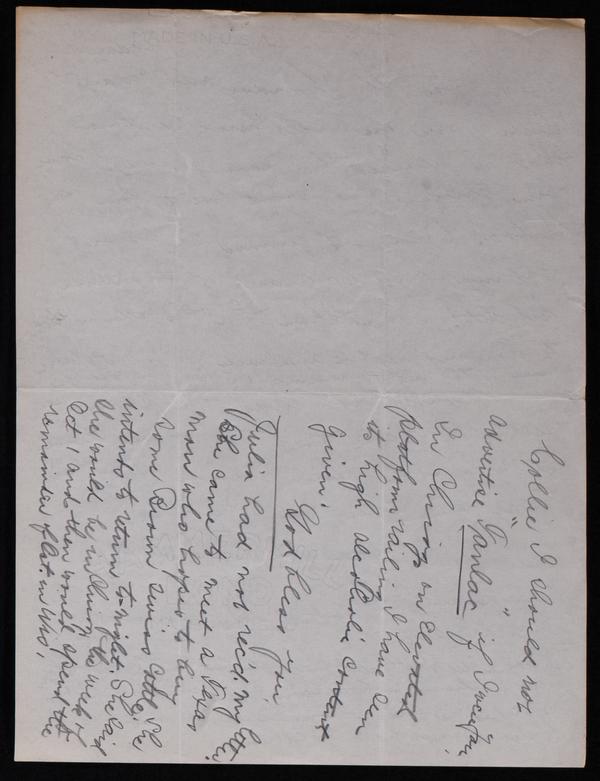 Collie I should not
advertise "Tanlac" if I were you
In Chicago on Elevated
platform railing I have seen
its high alcoholic content
given.
God bless you
Julia had not rec'd. my letter
She came to meet a Texas
man who hopes to buy
some Brown Swiss cattle. She
intends to return to-night. She said
she would be in Chicago the week of
Oct 1 and then would spend the
remainder of Oct. in Wis.